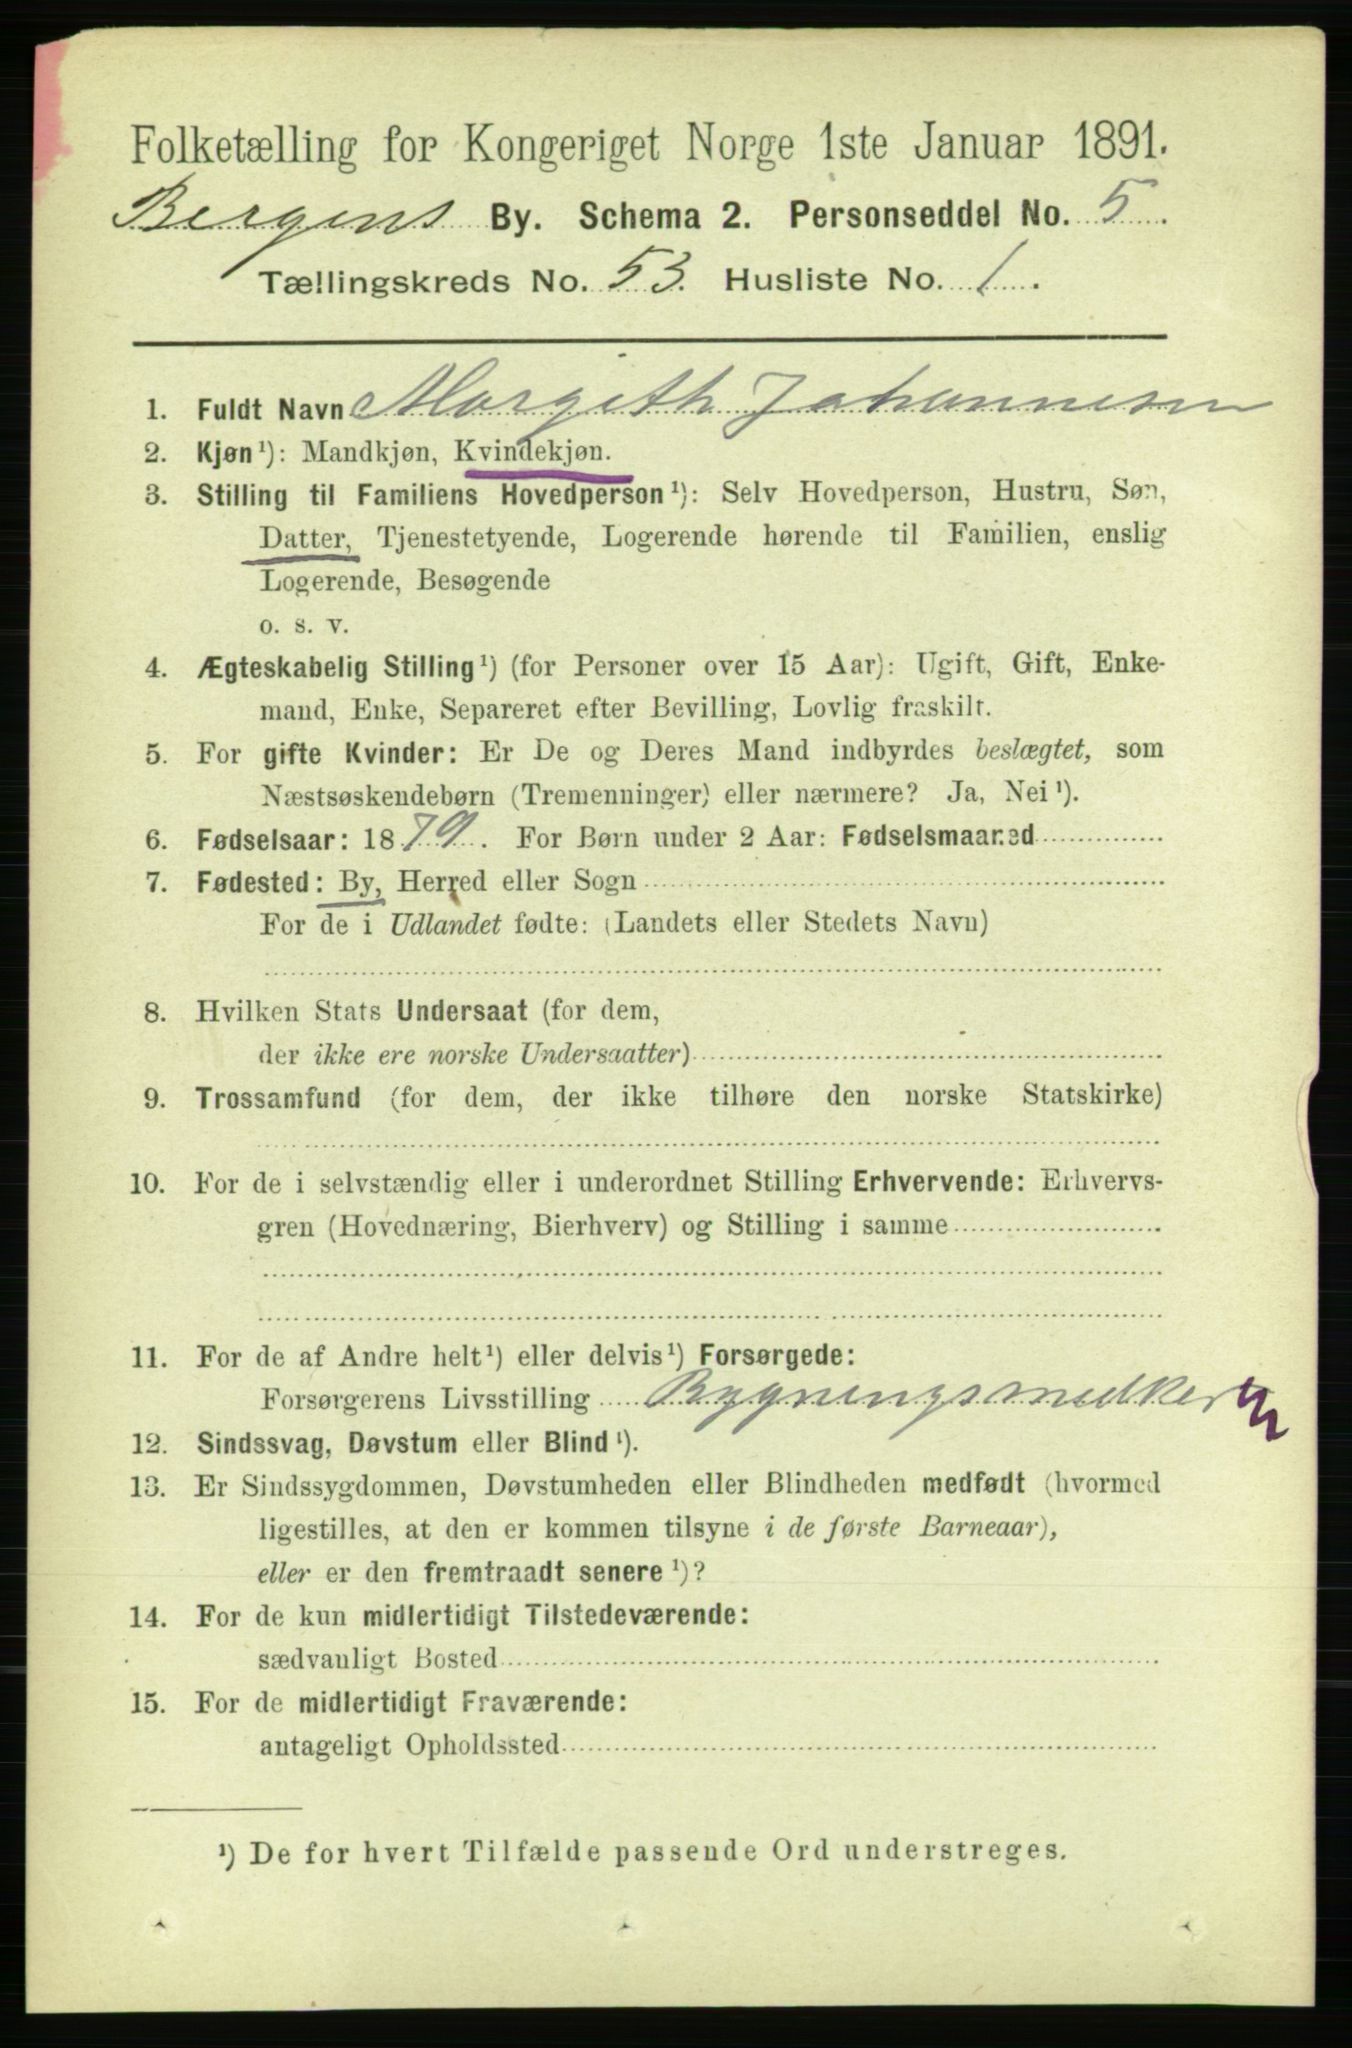 Folketælling for Kongeriget Norge 1ste Januar 1891.
Bergens By. Schema 2. Personseddel No. 5.
Tællingskreds No. 53. Husliste No. 1.
1. Fuldt Navn Margith Johannesen
2. Kjøn¹): Mandkjøn, Kvindekjøn.
3. Stilling til Familiens Hovedperson¹): Selv Hovedperson, Hustru, Søn,
Datter, Tjenestetyende, Logerende hørende til Familien, enslig
Logerende, Besøgende
o. s. v.
4. Ægteskabelig Stilling¹) (for Personer over 15 Aar): Ugift, Gift, Enke-
mand, Enke, Separeret efter Bevilling, Lovlig fraskilt.
5. For gifte Kvinder: Er De og Deres Mand indbyrdes beslægtet, som
Næstsøskendebørn (Tremenninger) eller nærmere? Ja, Nei¹).
6. Fødselsaar: 1879. For Børn under 2 Aar: Fødselsmaaned
7. Fødested: By, Herred eller Sogn
For de i Udlandet fødte: (Landets eller Stedets Navn)
8. Hvilken Stats Undersaat (for dem,
der ikke ere norske Undersaatter)
9. Trossamfund (for dem, der ikke tilhøre den norske Statskirke)
10. For de i selvstændig eller i underordnet Stilling Erhvervende: Erhvervs-
gren (Hovednæring, Bierhverv) og Stilling i samme
11. For de af Andre helt¹) eller delvis¹) Forsørgede:
Forsørgerens Livsstilling Bygningssnedker
12. Sindssvag, Døvstum eller Blind¹).
13. Er Sindssygdommen, Døvstumheden eller Blindheden medfødt (hvormed
ligestilles, at den er kommen tilsyne i de første Barneaar),
eller er den fremtraadt senere¹)?
14. For de kun midlertidigt Tilstedeværende:
sædvanligt Bosted
15. For de midlertidigt Fraværende:
antageligt Opholdssted
¹) De for hvert Tilfælde passende Ord understreges.